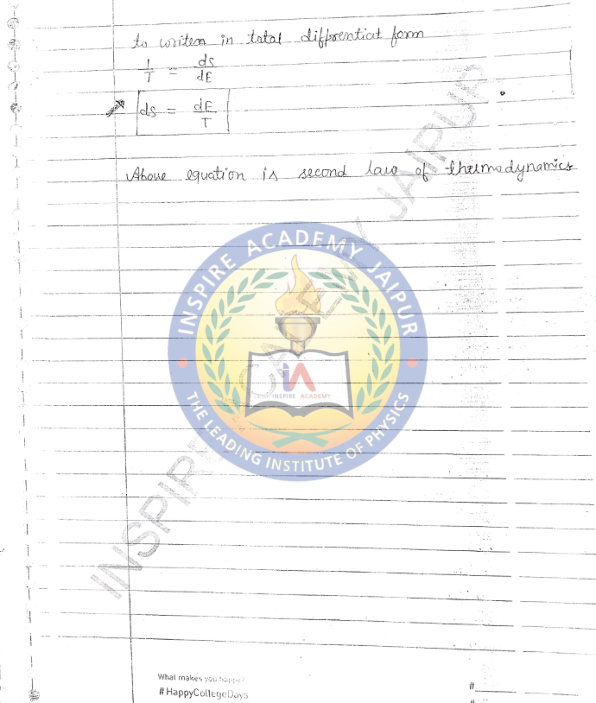 to writen in total diffrential form
1/T = ds/dE
ds = dE/T
Above equation is second law of thermodynamics
INSPIRE ACADEMY JAIPUR
INSPIRE ACADEMY JAIPUR
iA
INSPIRE ACADEMY
THE LEADING INSTITUTE OF PHYSICS
What makes you happy?
#HappyCollegeDays
#
#